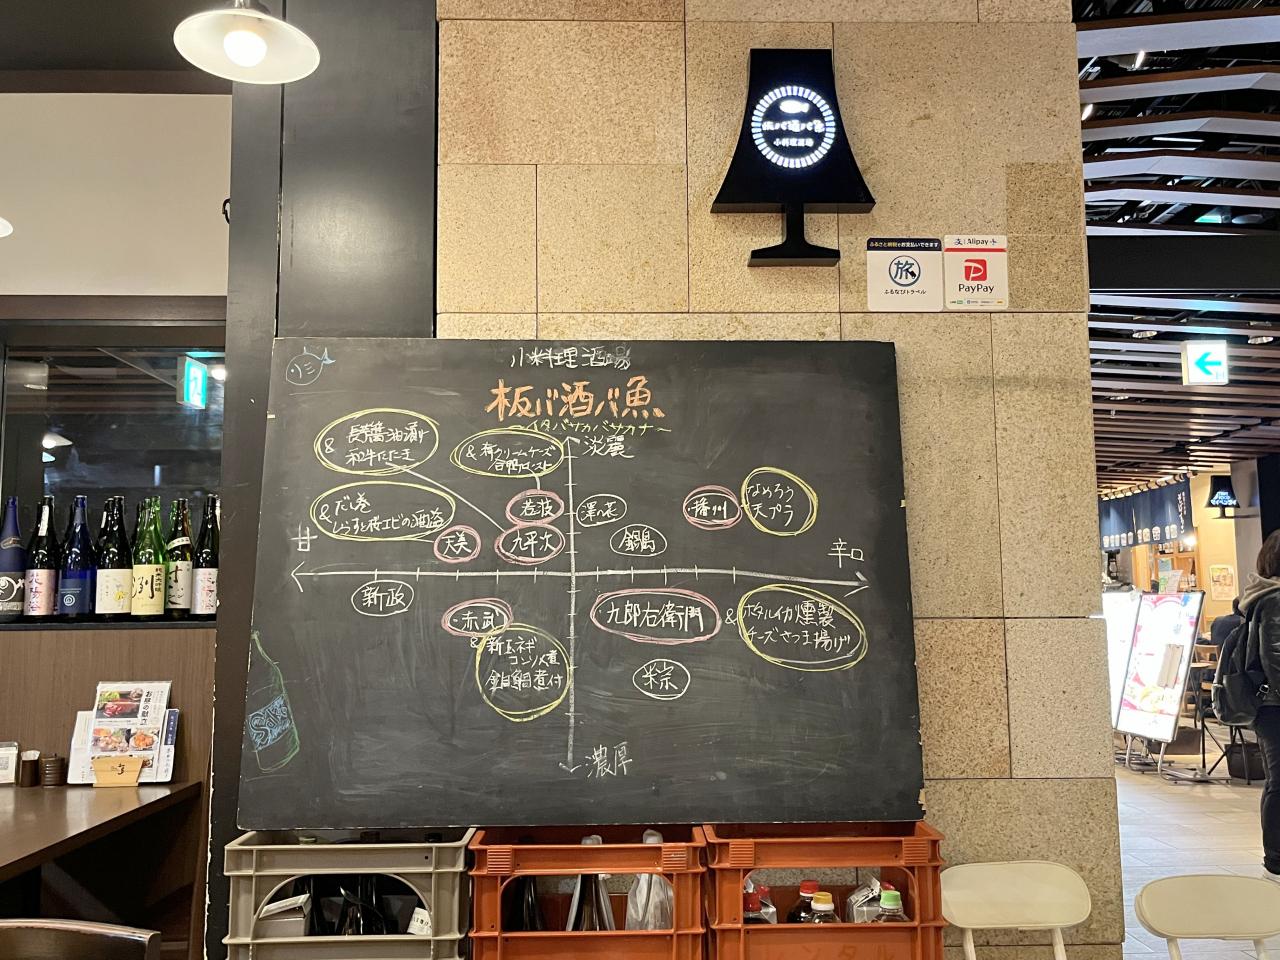 板バ酒バ魚
小料理酒場
ふるさと納税でお支払いできます
旅
ふるなびトラベル
Alipay
PayPay
小料理酒場
板バ酒バ魚
〜イタバサカバサカナ〜
淡麗
& 長芋醤油漬け
和牛たたき
&
クリームチーズ
合鴨ロースト
& だし巻
しらすと桜エビの酒盗
天美
九平次
澤の花
鍋島
播州
なめろう
天プラ
甘口
辛口
新政
赤武
& 新玉ネギ
コンソメ煮
金目鯛煮付
九郎右衛門
& ホタルイカ燻製
チーズさつま揚げ
米宗
濃厚
お昼の献立